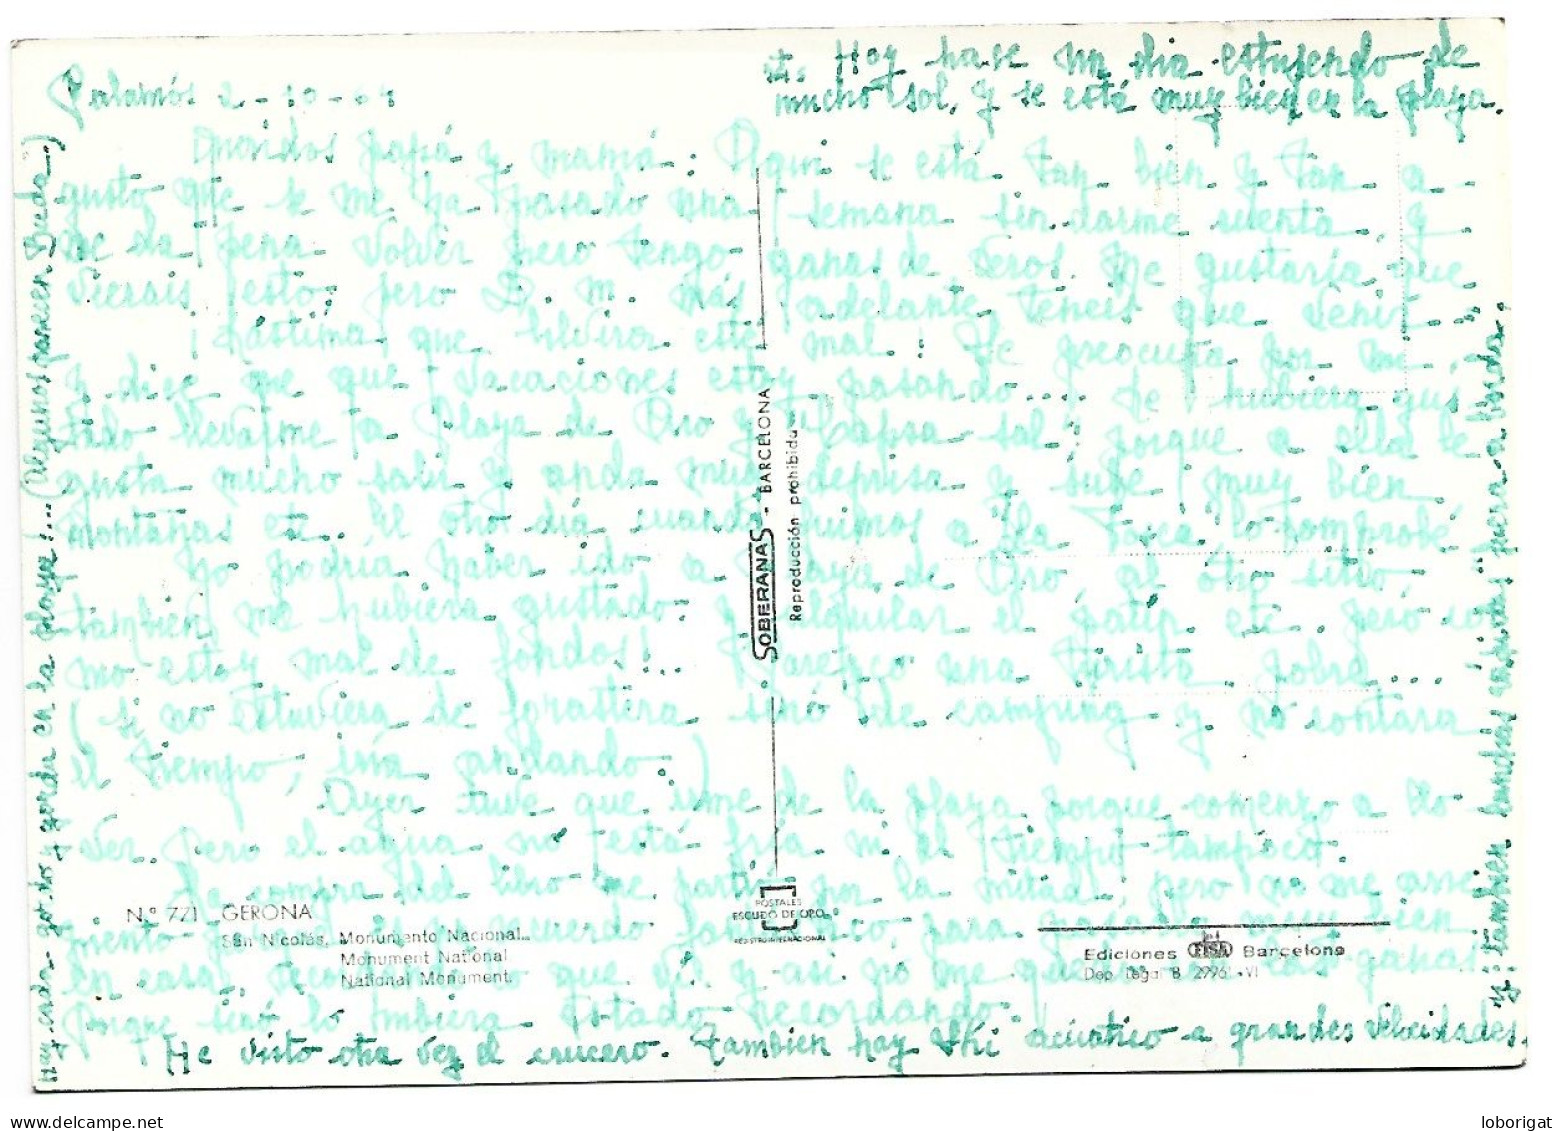 Palamós 2-10-64
Hoy hase un dia estupendo de
mucho sol, y se está muy bien en la playa.
Queridos papá y mamá: Aqui se está tan bien y tan a
gusto, que se me ha pasado una semana sin darme cuenta, y
me da pena volver pero tengo ganas de veros. Me gustaría que
vierais esto, pero D. m. más adelante teneis que venir...
¡Lástima que Elvira esté mal! Se preocupa por mi
y dice que que vacaciones estoy pasando.... Le hubiera gus
tado llevarme a Playa de Oro y "Capsa-sal" porque a ella le
gusta mucho salir y anda muy deprisa y sube muy bien
montañas etc. El otro día cuando fuimos a la Fosca lo comprobé
Yo podria haber ido a Playa de Oro al otro sitio
tambien me hubiera gustado y alquilar el patin etc. pero co
mo estoy mal de fondos!... Parezco una turista pobre....
(si no estuviera de forastera sinó de camping y no contara
el tiempo, iría andando.)
Ayer tuve que irme de la playa porque comenzo a llo
ver. Pero el agua no está fria ni el tiempo tampoco.
La compra del libro me partió por la mitad, pero no me arre
miento recuerdo para pasarla muy bien
en casa, recordando lo que ví y así no me quedo con las ganas
Porque sinó lo hubiera estado recordando.
He visto otra vez el crucero. Tambien hay Ski acuático a grandes velocidades,
y: tambien lanchas rápidas fuera-a-borda.
Hay cada gordos y gorda en la playa!... (Algunos parecen Buda.)
N.º 771 GERONA
San Nicolás, Monumento Nacional
Monument National
National Monument.
SOBERANAS - BARCELONA
Reproducción prohibida
POSTALES
ESCUDO DE ORO
REGISTRO INTERNACIONAL
Ediciones FISA Barcelona
Dep. Legal B. 2996-VI
loborigat